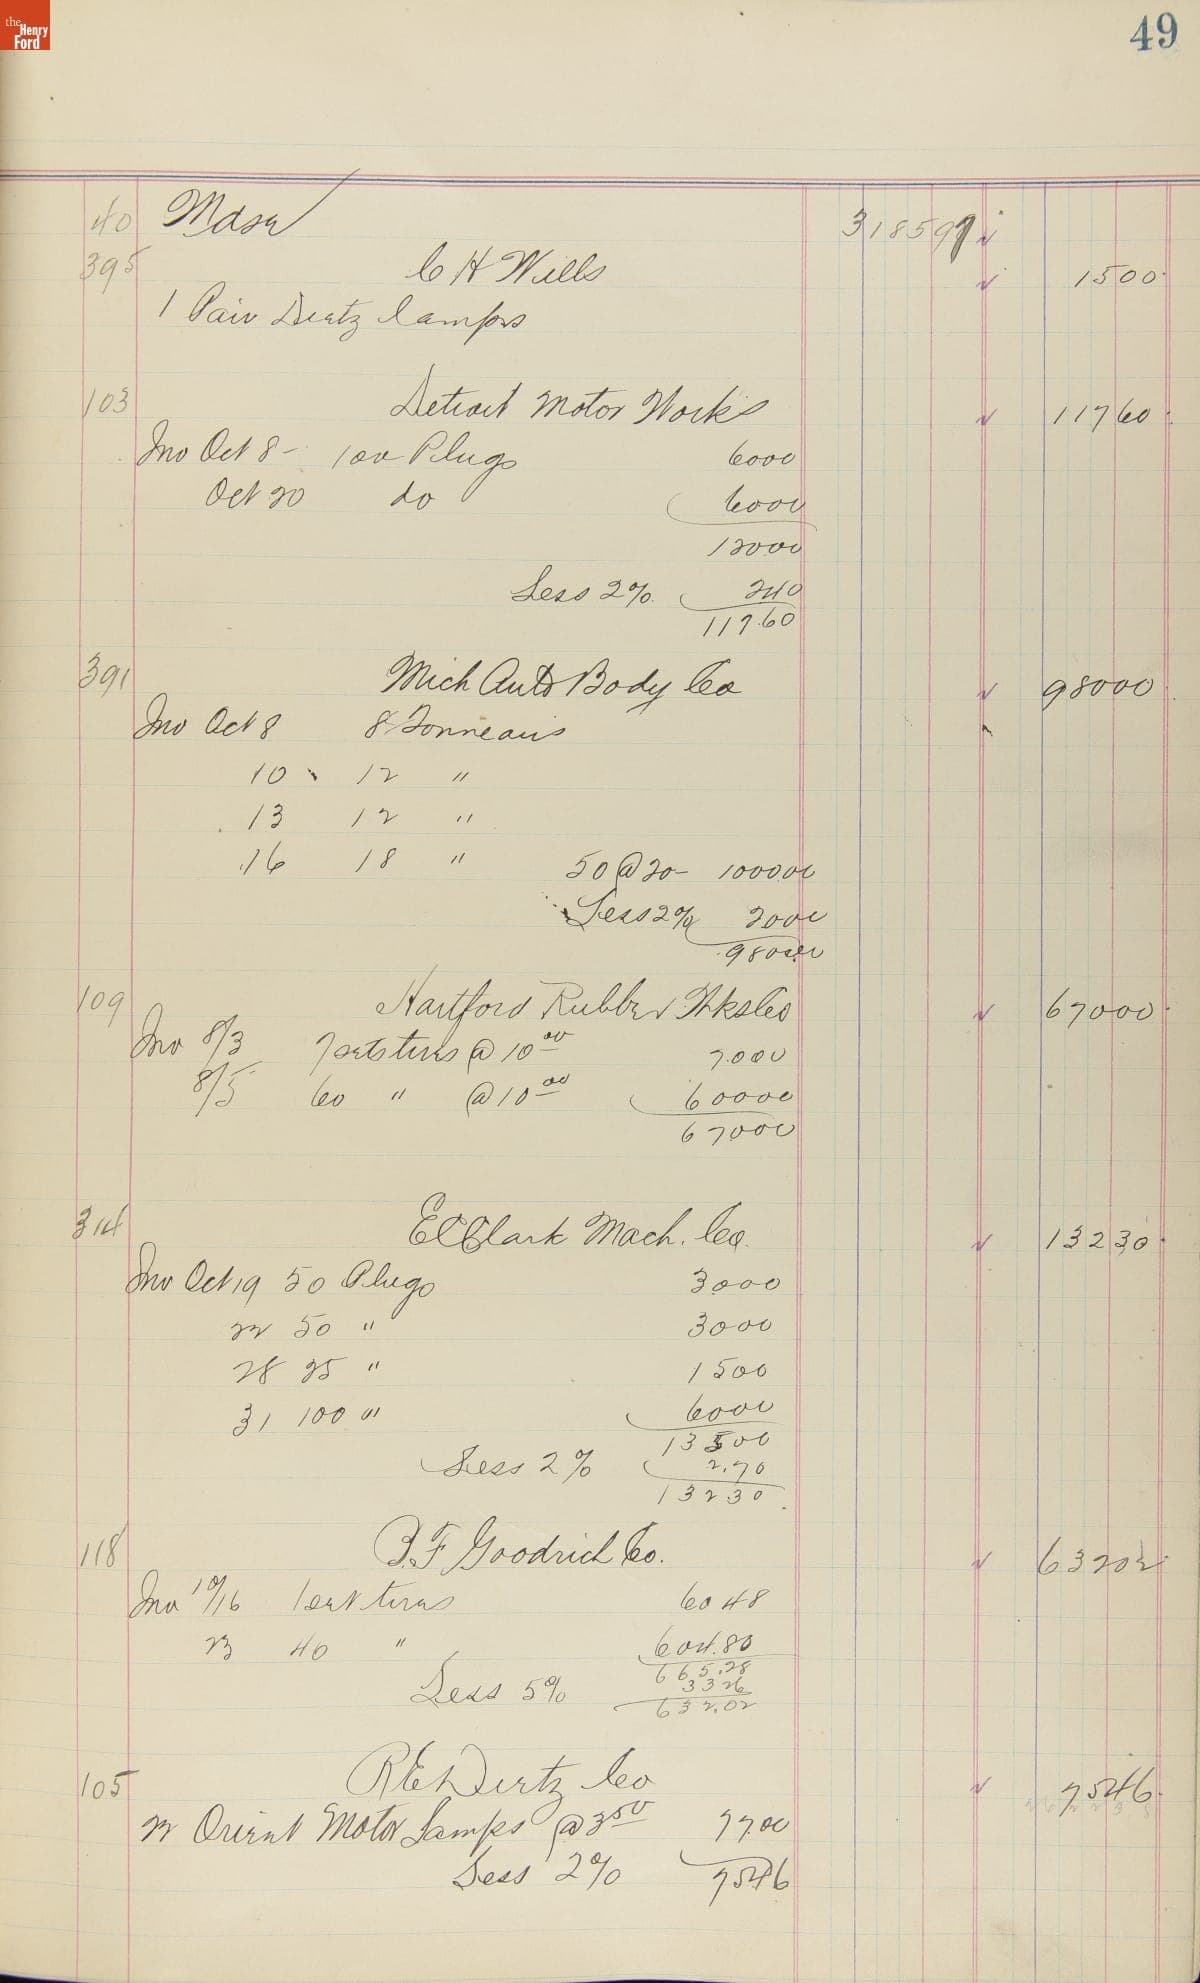 the Henry Ford
49
40 Mdse 318597
395 C H Wills 1500
1 Pair Dietz lamps
103 Detroit Motor Works 11760
Inv Oct 8 - 100 Plugs 6000
Oct 20 do 6000
12000
Less 2% 240
117.60
391 Mich Auto Body Co 98000
Inv Oct 8 8 Tonneaus
10 12 "
13 12 "
16 18 " 50 @ 20- 100000
Less 2% 2000
98000
109 Hartford Rubber Wks Co 67000
Inv 8/3 7 sets tires @ 10 00 7000
8/5 60 " @ 10 00 60000
67000
314 E C Clark Mach. Co. 13230
Inv Oct 19 50 Plugs 3000
22 50 " 3000
28 25 " 1500
31 100 " 6000
13500
Less 2% 2.70
13230
118 B.F. Goodrich Co. 63202
Inv 10/16 1 set tires 6048
23 40 " 604.80
665.28
Less 5% 3326
632.02
105 R E Dietz Co 7546
22 Orient Motor Lamps @ 3 50 77.00
Less 2% 7546